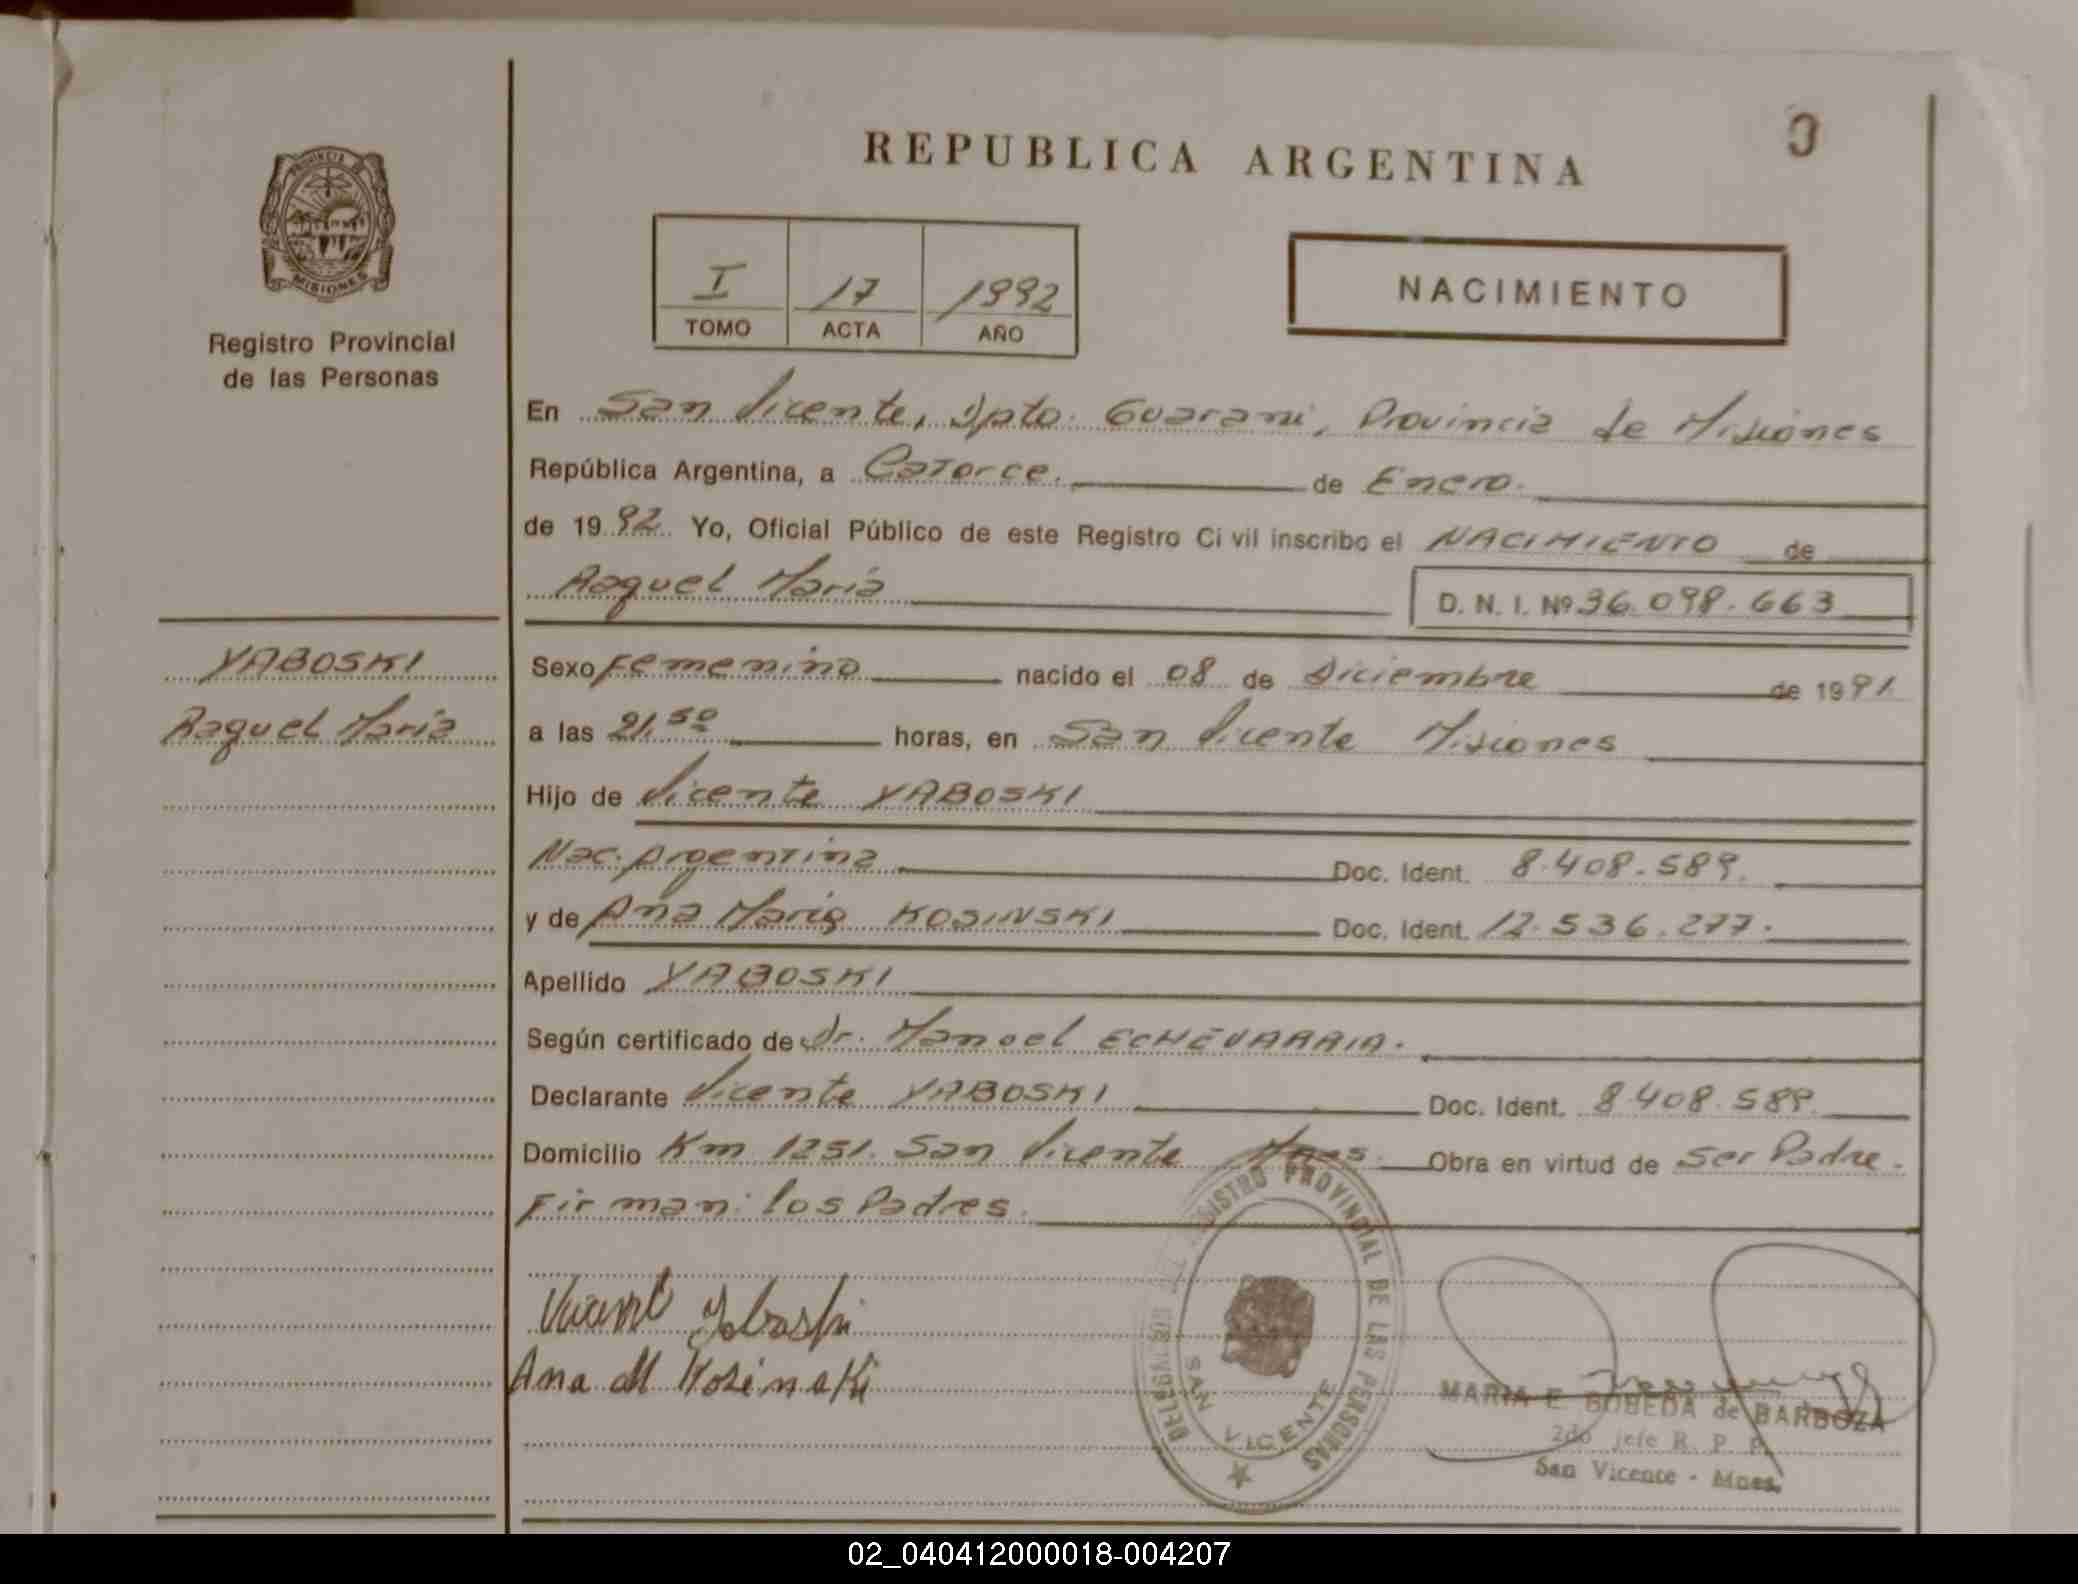 REPUBLICA ARGENTINA
PROVINCIA DE MISIONES
Registro Provincial
de las Personas
I 17 1992
TOMO ACTA AÑO
NACIMIENTO
En San Vicente, Dpto. Guarani, Provincia de Misiones
República Argentina, a Catorce. de Enero.
de 1992. Yo, Oficial Público de este Registro Civil inscribo el NACIMIENTO de
Raquel María D. N. I. Nº 36.098.663
YABOSKI
Raquel María
Sexo Femenino nacido el 08 de Diciembre de 1991.
a las 21,50 horas, en San Vicente Misiones
Hijo de Vicente YABOSKI
Nac. Argentina Doc. Ident. 8.408.589.
y de Ana Maria KOSINSKI Doc. Ident. 12.536.277.
Apellido YABOSKI
Según certificado de Dr. Manoel ECHEVARRIA.
Declarante Vicente YABOSKI Doc. Ident. 8.408.589.
Domicilio Km 1251. San Vicente Mnes. Obra en virtud de ser Padre.
Firman: los Padres.
Ana M Kosinski
REGISTRO PROVINCIAL DE LAS PERSONAS
SAN VICENTE
MARIA E. BOBEDA de BARBOZA
2do jefe R. P. P.
San Vicente - Mnes.
02_040412000018-004207